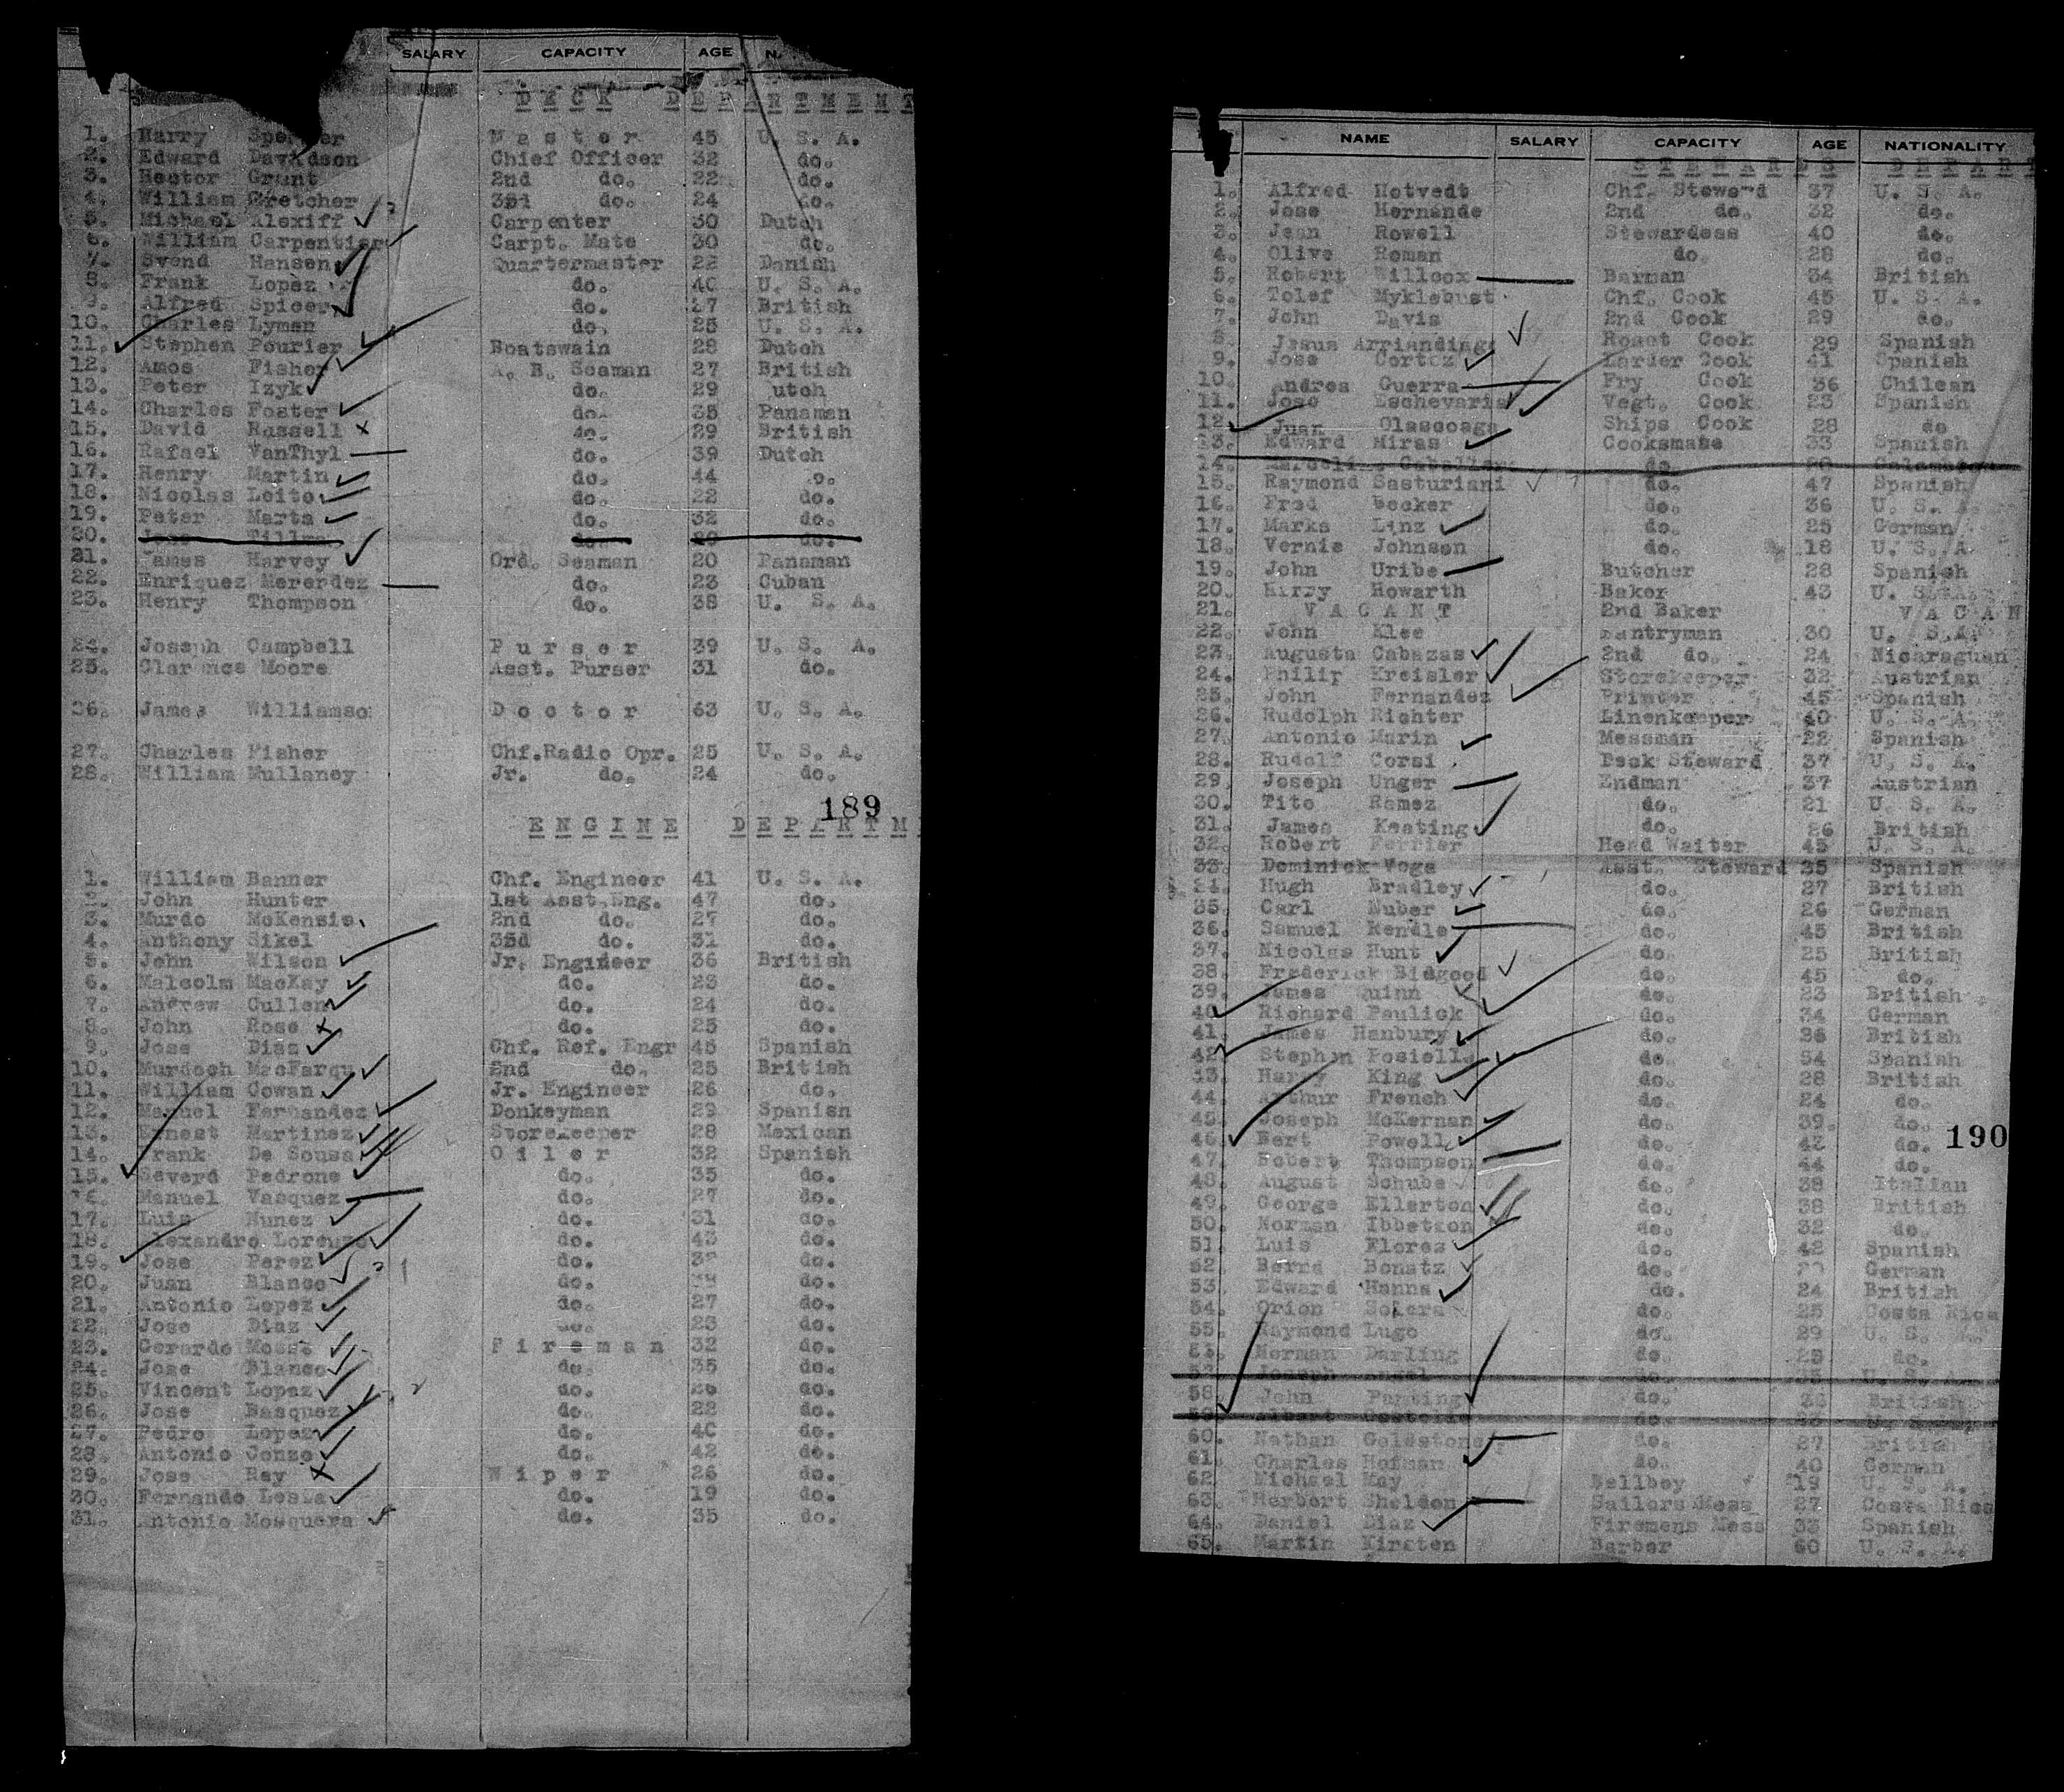 SALARY CAPACITY AGE
DECK DEPARTMENT
1. Harry Spencer Master 45 U. S. A.
2. Edward Davidson Chief Officer 32 do.
3. Hector Grant 2nd do. 22 do.
4. William Gretcher do. 24 do.
5. Michael Alexiff Carpenter 30 Dutch
6. William Carpentier Carpt. Mate 30 do.
7. Svend Hansen Quartermaster 22 Danish
8. Frank Lopez do. 40 U. S. A.
9. Alfred Spicer do. 27 British
10. Charles Lyman do. 25 U. S. A.
11. Stephen Pourier Boatswain 28 Dutch
12. Amos Fisher A. B. Seaman 27 British
13. Peter Izyk do. 29 utch
14. Charles Foster do. 35 Panaman
15. David Russell do. 29 British
16. Rafael VanThyl do. 39 Dutch
17. Henry Martin do. 44 o.
18. Nicolas Loito do. 22 do.
19. Peter Marta do. 32 do.
20. do. do.
21. James Harvey Ord. Seaman 20 Panaman
22. Enriquez Merendez do. 23 Cuban
23. Henry Thompson do. 38 U. S. A.
24. Joseph Campbell Purser 39 U. S. A.
25. Clarence Moore Asst. Purser 31 do.
26. James Williamso Doctor 63 U. S. A.
27. Charles Fisher Chf.Radio Opr. 25 U. S. A.
28. William Mullaney Jr. do. 24 do.
189
ENGINE DEPARTM
1. William Banner Chf. Engineer 41 U. S. A.
2. John Hunter 1st Asst.Eng. 47 do.
3. Murdo McKensie. 2nd do. 27 do.
4. Anthony Sikel do. 31 do.
5. John Wilson Jr. Engineer 36 British
6. Malcolm MacKay do. 23 do.
7. Andrew Cullen do. 24 do.
8. John Rose do. 25 do.
9. Jose Diaz Chf. Ref. Engr 45 Spanish
10. Murdoch MacFarqu 2nd do. 25 British
11. William Cowan Jr. Engineer 26 do.
12. Manuel Fernandez Donkeyman 29 Spanish
13. Ernest Martinez Storekeeper 28 Mexican
14. Frank De Sousa Oiler 32 Spanish
15. Severd Pedrone do. 35 do.
16. Manuel Vasquez do. 27 do.
17. Luis Nunez do. 31 do.
18. Alexandro Lorenzo do. 43 do.
19. Jose Perez do. do.
20. Juan Blanco do. do.
21. Antonio Lopez do. 27 do.
22. Jose Diaz do. 23 do.
23. Gerardo Fireman 32 do.
24. Jose Blanco do. 35 do.
25. Vincent Lopez do. 26 do.
26. Jose Basquez do. 22 do.
27. Pedro Lopez do. 40 do.
28. Antonio Conzo do. 42 do.
29. Jose Rey Wiper 26 do.
30. Fernando do. 19 do.
31. Antonio Mosquera do. 35 do.
NAME SALARY CAPACITY AGE NATIONALITY
STEWARDS DEPART
1. Alfred Hotvedt Chf. Steward 37 U. S. A.
2. Jose Hernande 2nd do. 32 do.
3. Jean Rowell Stewardess 40 do.
4. Olive Roman do. 28 do.
5. Robert Willcox Barman 34 British
6. Tolef Myklebust Chf. Cook 45 U. S. A.
7. John Davis 2nd Cook 29 do.
8. Jesus Arriandinga Roast Cook 29 Spanish
9. Jose Cortez Larder Cook 41 Spanish
10. Andres Guerra Fry Cook 36 Chilean
11. Jose Eschevaria Vegt. Cook 23 Spanish
12. Juan Olascoaga Ships Cook 28 do
13. Edward Miras Cooksmate 33 Spanish
14. Marcelino Caballero do.
15. Raymond Sasturiani do. 47 Spanish
16. Fred Becker do. 36 U. S. A.
17. Marks Linz do. 25 German
18. Vernie Johnson do. 18 U. S. A.
19. John Uribe Butcher 28 Spanish
20. Harry Howarth Baker 43 U. S. A.
21. VACANT 2nd Baker VACAN
22. John Klee Pantryman 30 U. S.A.
23. Augusta Cabazas 2nd do. 24 Nicaraguan
24. Philip Kreisler Storekeeper 32 Austrian
25. John Fernandez Printer 45 Spanish
26. Rudolph Richter Linenkeeper 40 U. S. A.
27. Antonio Marin Messman 22 Spanish
28. Rudolf Corsi Deck Steward 37 U. S. A.
29. Joseph Unger Endman 37 Austrian
30. Tito Ramez do. 21 U. S. A.
31. James Keating do. 26 British
32. Robert Ferrier Head Waiter 45 U. S. A.
33. Dominick Vega Asst. Steward 35 Spanish
34. Hugh Bradley do. 27 British
35. Carl Nuber do. 26 German
36. Samuel Rendle do. 45 British
37. Nicolas Hunt do. 25 British
38. Frederick Bidgood do. 45 do.
39. James Quinn do. 23 British
40. Richard Paulick do. 34 German
41. James Hanbury do. 36 British
42. Stephen Posiello do. 54 Spanish
43. Harry King do. 28 British
44. Arthur French do. 24 do.
45. Joseph McKernan do. 39. do.
46. Bert Powell do. 42 do.
190
47. Robert Thompson do. 44 do.
48. August Schube do. 38 Italian
49. George Ellerton do. 38 British
50. Norman Ibbetson do. 32 do.
51. Luis Florez do. 42 Spanish
52. Bernd Bonatz do. German
53. Edward Hanna do. 24 British
54. Orion Solera do. 25 Costa Rica
55. Raymond Lugo do. 29 U. S. A.
56. Norman Darling do. 25 do.
57. Joseph do. U. S. A.
58. John Panting do. 36 British
59. Albert Costello do.
60. Nathan Goldstone do. 27 British
61. Charles Hofman do. 40 German
62. Michael May Bellboy 19 U. S. A.
63. Herbert Sheldon Sailors Mess 27 Costa Rica
64. Daniel Diaz Firemens Mess 33 Spanish
65. Martin Kirsten Barber 60 U. S. A.